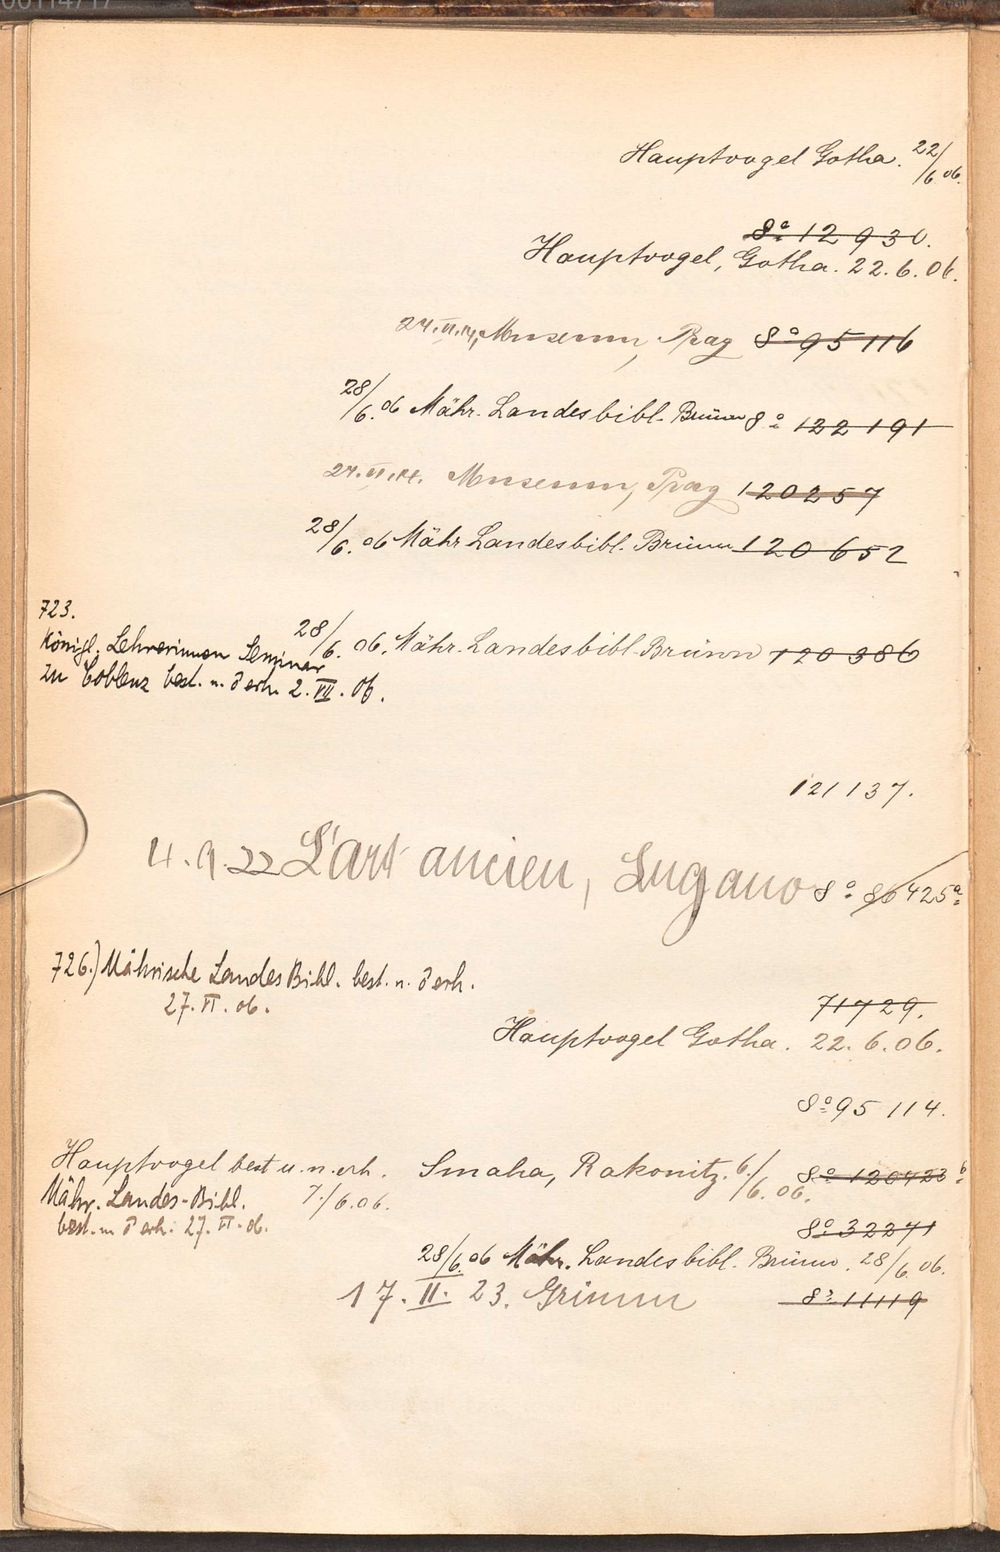 Hauptvogel Gotha. 22/6 06.
8° 12 930.
Hauptvogel, Gotha. 22.6.06.
24.II.14, Museum, Prag 8° 95 116
28/6. 06 Mähr. Landesbibl. Brünn 8° 122 191
24.II.14. Museum, Prag 120257
28/6. 06 Mähr Landesbibl. Brünn 120 652
723.
28/6. 06. Mähr. Landesbibl. Brünn 120 386
Königl. Lehrerinnen Seminar
zu Coblenz best. n. erh. 2. VII. 06.
121 137.
4.9.22 L'art ancien, Lugano 8° 86425ª
726.) Mährische Landes Bibl. best. n. erh.
27. VI. 06.
71729.
Hauptvogel Gotha. 22.6.06.
8° 95 114.
Hauptvogel best u. n. erh. Smaha, Rakonitz. 6./6. 06. 8° 120423 b
Mähr. Landes-Bibl. 7./6.06.
best. n. erh. 27. VI. 06.
8° 32271
28/6. 06 Mähr. Landesbibl. Brünn. 28/6. 06.
17. II. 23. Grimm 8° 11119